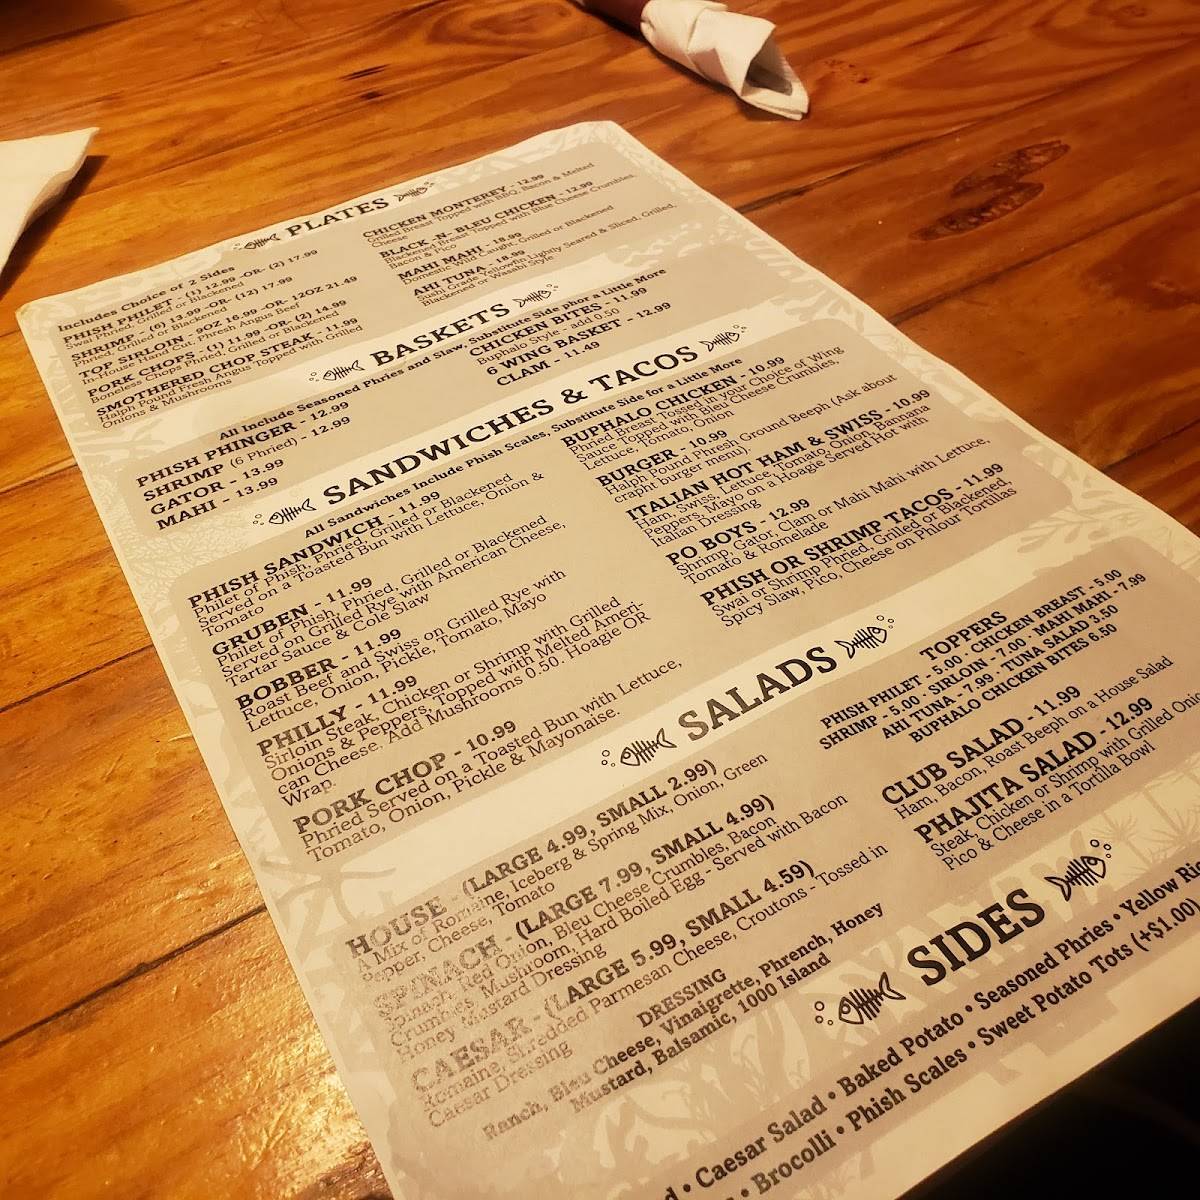 PLATES
Includes Choice of 2 Sides
PHISH PHILET - (1) 12.99 -OR- (2) 17.99
Swai Phried, Grilled or Blackened
SHRIMP - (6) 13.99 -OR- (12) 17.99
Phried, Grilled or Blackened
TOP SIRLOIN - 9OZ 16.99 -OR- 12OZ 21.49
In-House Hand Cut, Phresh Angus Beef
PORK CHOPS - (1) 11.99 -OR- (2) 14.99
Boneless Chops Phried, Grilled or Blackened
SMOTHERED CHOP STEAK - 11.99
Halph Pound Fresh Angus Topped with Grilled
Onions & Mushrooms
CHICKEN MONTEREY - 12.99
Grilled Breast Topped with BBQ, Bacon & Melted
Cheese
BLACK -N- BLEU CHICKEN - 12.99
Blackened Breast Topped with Blue Cheese Crumbles,
Bacon & Pico
MAHI MAHI - 18.99
Domestic Wild Caught, Grilled or Blackened
AHI TUNA - 18.99
Sushi Grade Yellowfin Lightly Seared & Sliced, Grilled,
Blackened or Wasabi Style
BASKETS
All Include Seasoned Phries and Slaw, Substitute Side phor a Little More
PHISH PHINGER - 12.99
SHRIMP (6 Phried) - 12.99
GATOR - 13.99
MAHI - 13.99
CHICKEN BITES - 11.99
Buphalo Style - add 0.50
6 WING BASKET - 12.99
CLAM - 11.49
SANDWICHES & TACOS
All Sandwiches Include Phish Scales, Substitute Side for a Little More
PHISH SANDWICH - 11.99
Philet of Phish, Phried, Grilled or Blackened
Served on a Toasted Bun with Lettuce, Onion &
Tomato
GRUBEN - 11.99
Philet of Phish, Phried, Grilled or Blackened
Served on Grilled Rye, with American Cheese,
Tartar Sauce & Cole Slaw
BOBBER - 11.99
Roast Beef and Swiss on Grilled Rye with
Lettuce, Onion, Pickle, Tomato, Mayo
PHILLY - 11.99
Sirloin Steak, Chicken or Shrimp with Grilled
Onions & Peppers, Topped with Melted Ameri-
can Cheese. Add Mushrooms 0.50. Hoagie OR
Wrap.
PORK CHOP - 10.99
Phried Served on a Toasted Bun with Lettuce,
Tomato, Onion, Pickle & Mayonaise.
BUPHALO CHICKEN - 10.99
Phried Breast Tossed in your Choice of Wing
Sauce Topped with Bleu Cheese Crumbles,
Lettuce, Tomato, Onion
BURGER - 10.99
Halph Pound Phresh Ground Beeph (Ask about
crapht burger menu).
ITALIAN HOT HAM & SWISS - 10.99
Ham, Swiss, Lettuce, Tomato, Onion, Banana
Peppers, Mayo on a Hoagie Served Hot with
Italian Dressing
PO BOYS - 12.99
Shrimp, Gator, Clam or Mahi Mahi with Lettuce,
Tomato & Romelade
PHISH OR SHRIMP TACOS - 11.99
Swai or Shrimp Phried, Grilled or Blackened,
Spicy Slaw, Pico, Cheese on Phlour Tortillas
SALADS
HOUSE - (LARGE 4.99, SMALL 2.99)
A Mix of Romaine, Iceberg & Spring Mix, Onion, Green
Pepper, Cheese, Tomato
SPINACH - (LARGE 7.99, SMALL 4.99)
Spinach, Red Onion, Bleu Cheese Crumbles, Bacon
Crumbles, Mushroom, Hard Boiled Egg - Served with Bacon
Honey Mustard Dressing
CAESAR - (LARGE 5.99, SMALL 4.59)
Romaine, Shredded Parmesan Cheese, Croutons - Tossed in
Caesar Dressing
DRESSING
Ranch, Bleu Cheese, Vinaigrette, Phrench, Honey
Mustard, Balsamic, 1000 Island
TOPPERS
PHISH PHILET - 5.00 - CHICKEN BREAST - 5.00
SHRIMP - 5.00 - SIRLOIN - 7.00 - MAHI MAHI - 7.99
AHI TUNA - 7.99 - TUNA SALAD 3.50
BUPHALO CHICKEN BITES 6.50
CLUB SALAD - 11.99
Ham, Bacon, Roast Beeph on a House Salad
PHAJITA SALAD - 12.99
Steak, Chicken or Shrimp with Grilled Oni
Pico & Cheese in a Tortilla Bowl
SIDES
d • Caesar Salad • Baked Potato • Seasoned Phries • Yellow Ri
• Brocolli • Phish Scales • Sweet Potato Tots (+$1.00)